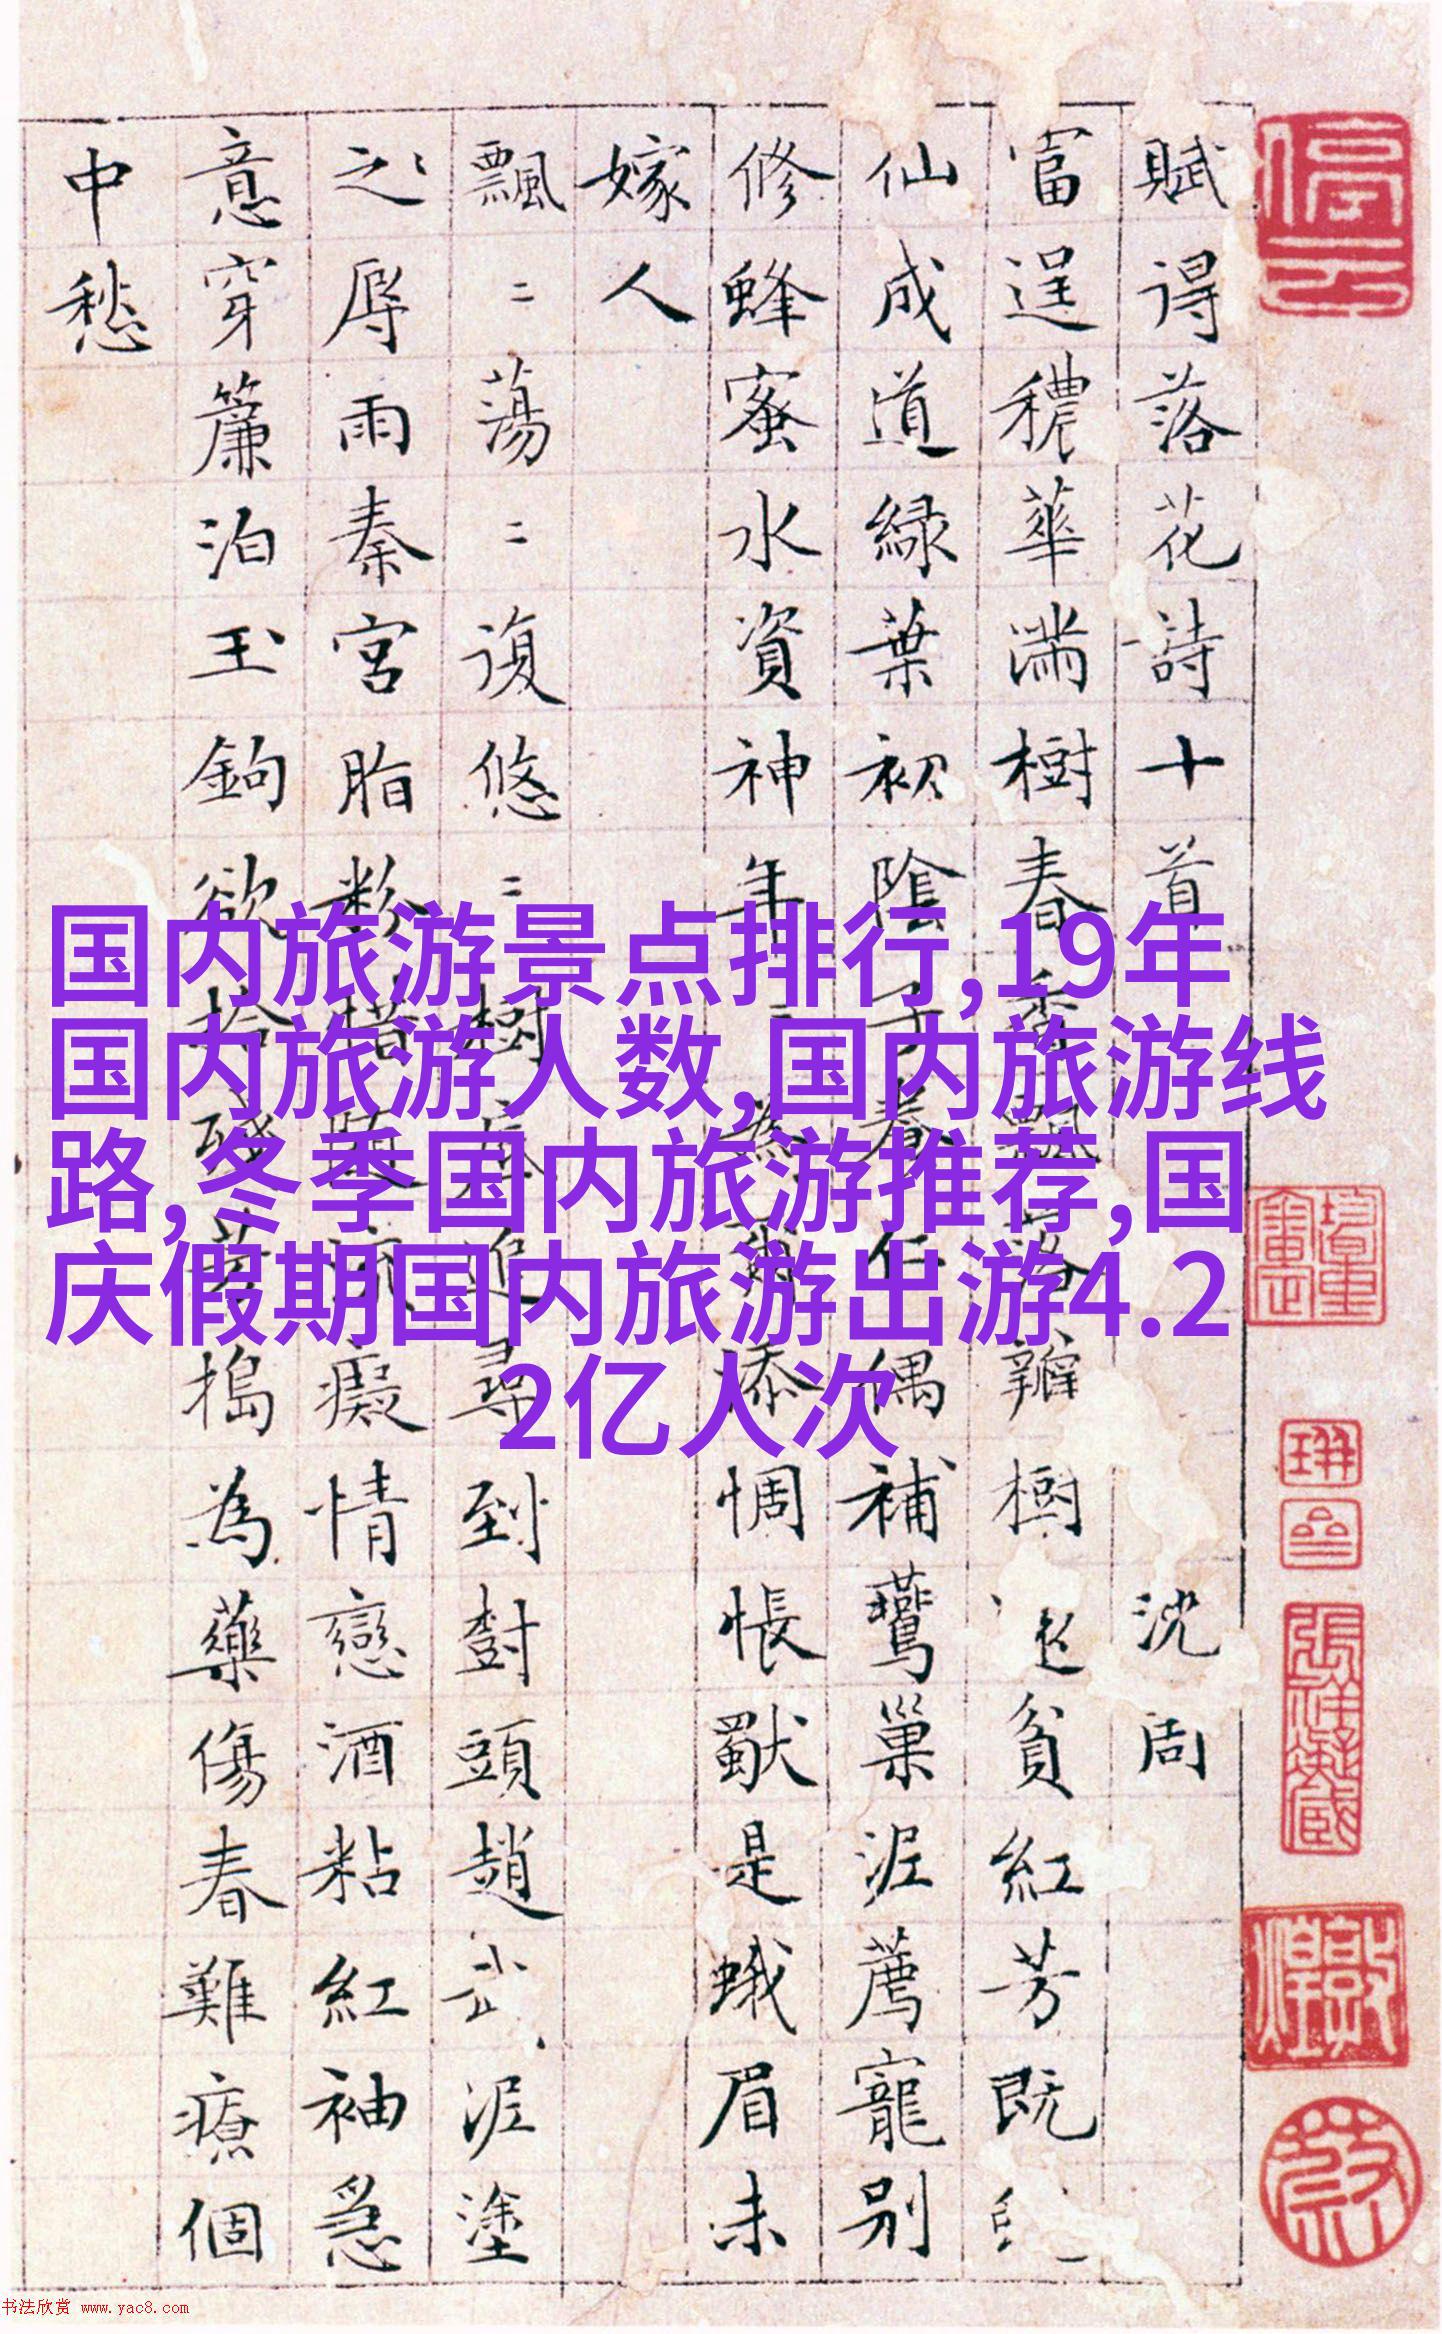 賦得落花詩十首 沈周
富逞穠華滿樹春香飄落瓣樹還貧紅芳既
仙成道綠葉初陰子養仁偶補鶯巢泥薦寵別
修蜂蜜水資神年年為爾添惆悵獸是蛾眉未
嫁人
飄〻蕩〻復悠〻樹底追尋到樹頭趙武泥塗
之辱雨秦宮脂粉惜隨流癡情戀酒粘紅袖急
意穿簾泊玉鉤欲拾殘芳搗為藥傷春難療個
中愁
停云
国内旅游景点排行,19年
国内旅游人数,国内旅游线
路,冬季国内旅游推荐,国
庆假期国内旅游出游4.2
2亿人次
书法欣赏 www.yac8.com